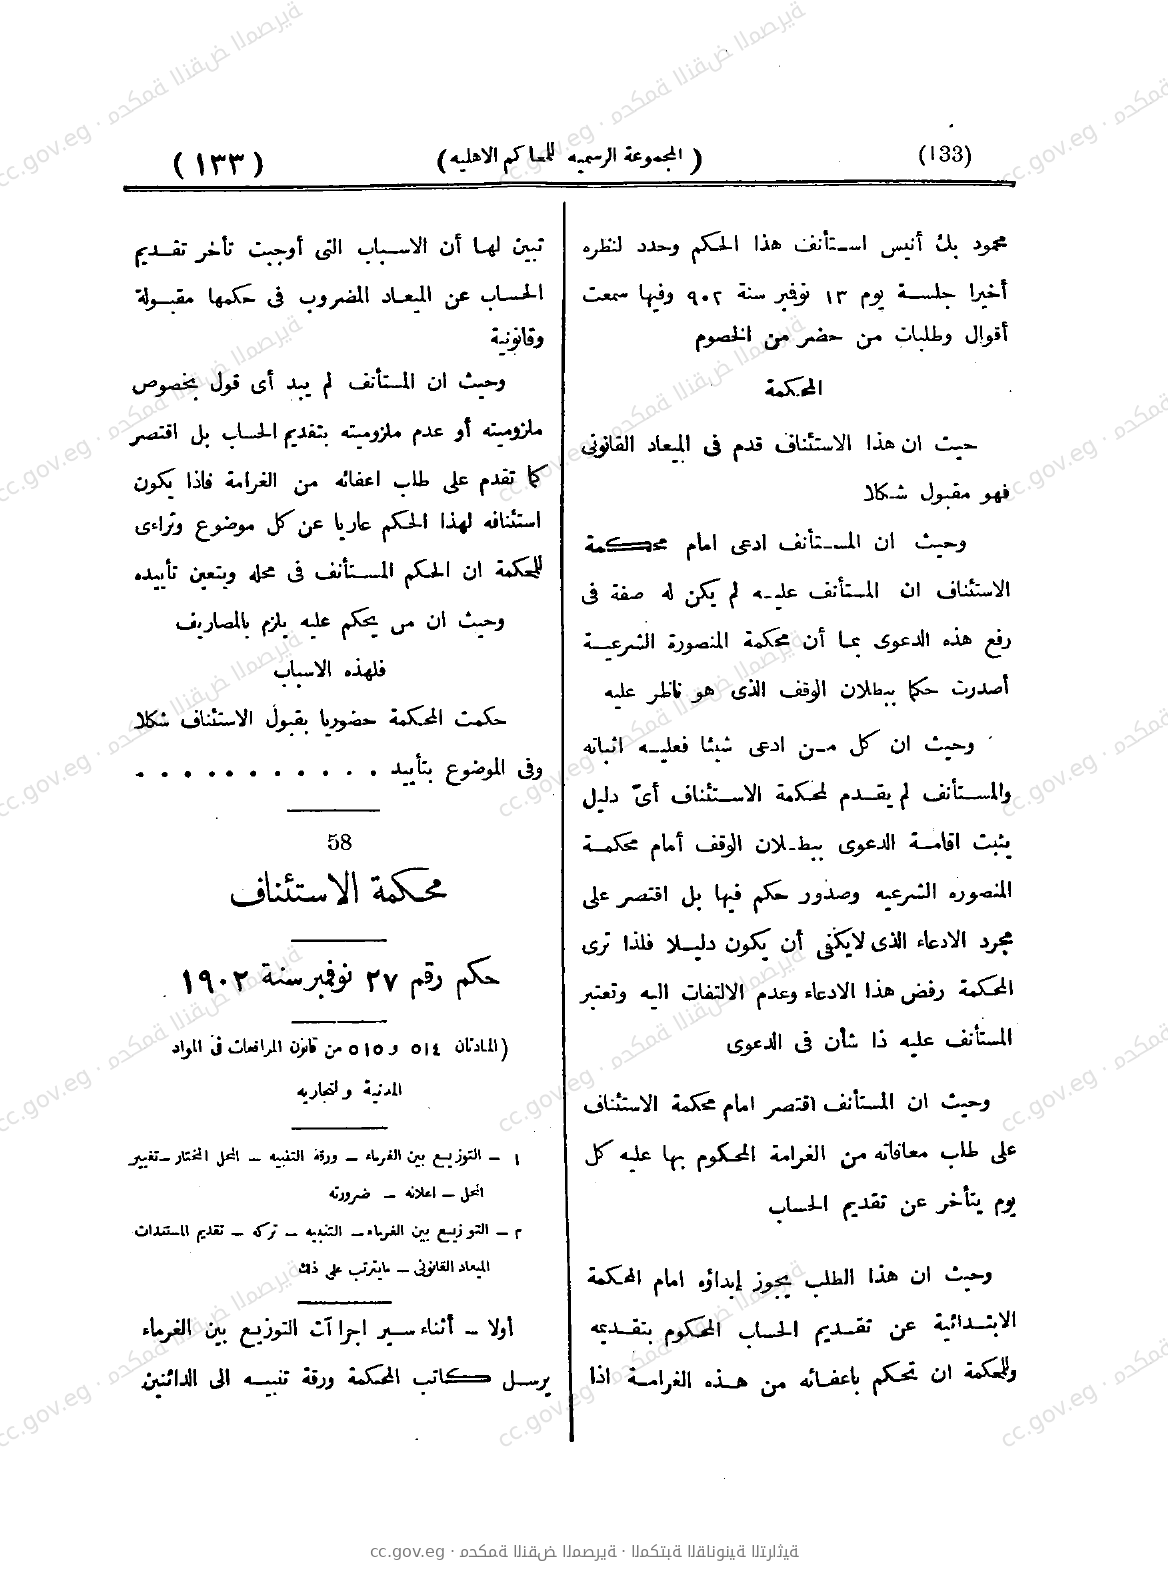 (133) ( المجموعة الرسميه للمحاكم الاهليه ) ( ١٣٣ )
محمود بك أنيس استأنف هذا الحكم وحدد لنظره
أخيرا جلسة يوم ١٣ نوفمبر سنة ٩٠٢ وفيها سمعت
أقوال وطلبات من حضر من الخصوم
المحكمة
حيث ان هذا الاستئناف قدم فى الميعاد القانونى
فهو مقبول شكلا
وحيث ان المستأنف ادعى امام محكمة
الاستئناف ان المستأنف عليه لم يكن له صفة فى
رفع هذه الدعوى بما أن محكمة المنصورة الشرعية
أصدرت حكما ببطلان الوقف الذى هو ناظر عليه
وحيث ان كل من ادعى شيئا فعليه اثباته
والمستأنف لم يقدم لمحكمة الاستئناف أىّ دليل
يثبت اقامة الدعوى ببطلان الوقف أمام محكمة
المنصوره الشرعيه وصدور حكم فيها بل اقتصر على
مجرد الادعاء الذى لايكفى أن يكون دليلا فلذا ترى
المحكمة رفض هذا الادعاء وعدم الالتفات اليه وتعتبر
المستأنف عليه ذا شأن فى الدعوى
وحيث ان المستأنف اقتصر امام محكمة الاستئناف
على طلب معافاته من الغرامة المحكوم بها عليه كل
يوم يتأخر عن تقديم الحساب
وحيث ان هذا الطلب يجوز إبداؤه امام المحكمة
الابتدائية عن تقديم الحساب المحكوم بتقديمه
وللمحكمة ان تحكم باعفائه من هذه الغرامة اذا
تبين لها أن الاسباب التى أوجبت تأخر تقديم
الحساب عن الميعاد المضروب فى حكمها مقبولة
وقانونية
وحيث ان المستأنف لم يبد أى قول بخصوص
ملزوميته أو عدم ملزوميته بتقديم الحساب بل اقتصر
كما تقدم على طلب اعفائه من الغرامة فاذا يكون
استئنافه لهذا الحكم عاريا عن كل موضوع وتراءى
للمحكمة ان الحكم المستأنف فى محله ويتعين تأييده
وحيث ان من يحكم عليه يلزم بالمصاريف
فلهذه الاسباب
حكمت المحكمة حضوريا بقبول الاستئناف شكلا
وفى الموضوع بتأييد . . . . . . . . . . .
58
محكمة الاستئناف
حكم رقم ٢٧ نوفمبر سنة ١٩٠٢
(المادتان ٥١٤ و ٥١٥ من قانون المرافعات فى المواد
المدنية والتجاريه
١ – التوزيع بين الغرماء – ورقة التنبيه – المحل المختار – تغيير
المحل – اعلانه – ضرورته
٢ – التوزيع بين الغرماء – التنبيه – تركه – تقديم المستندات
الميعاد القانونى – مايترتب على ذلك
أولا – أثناء سير اجراآت التوزيع بين الغرماء
يرسل كاتب المحكمة ورقة تنبيه الى الدائنين
cc.gov.eg · محكمة النقض المصرية · المكتبة القانونية التراثية